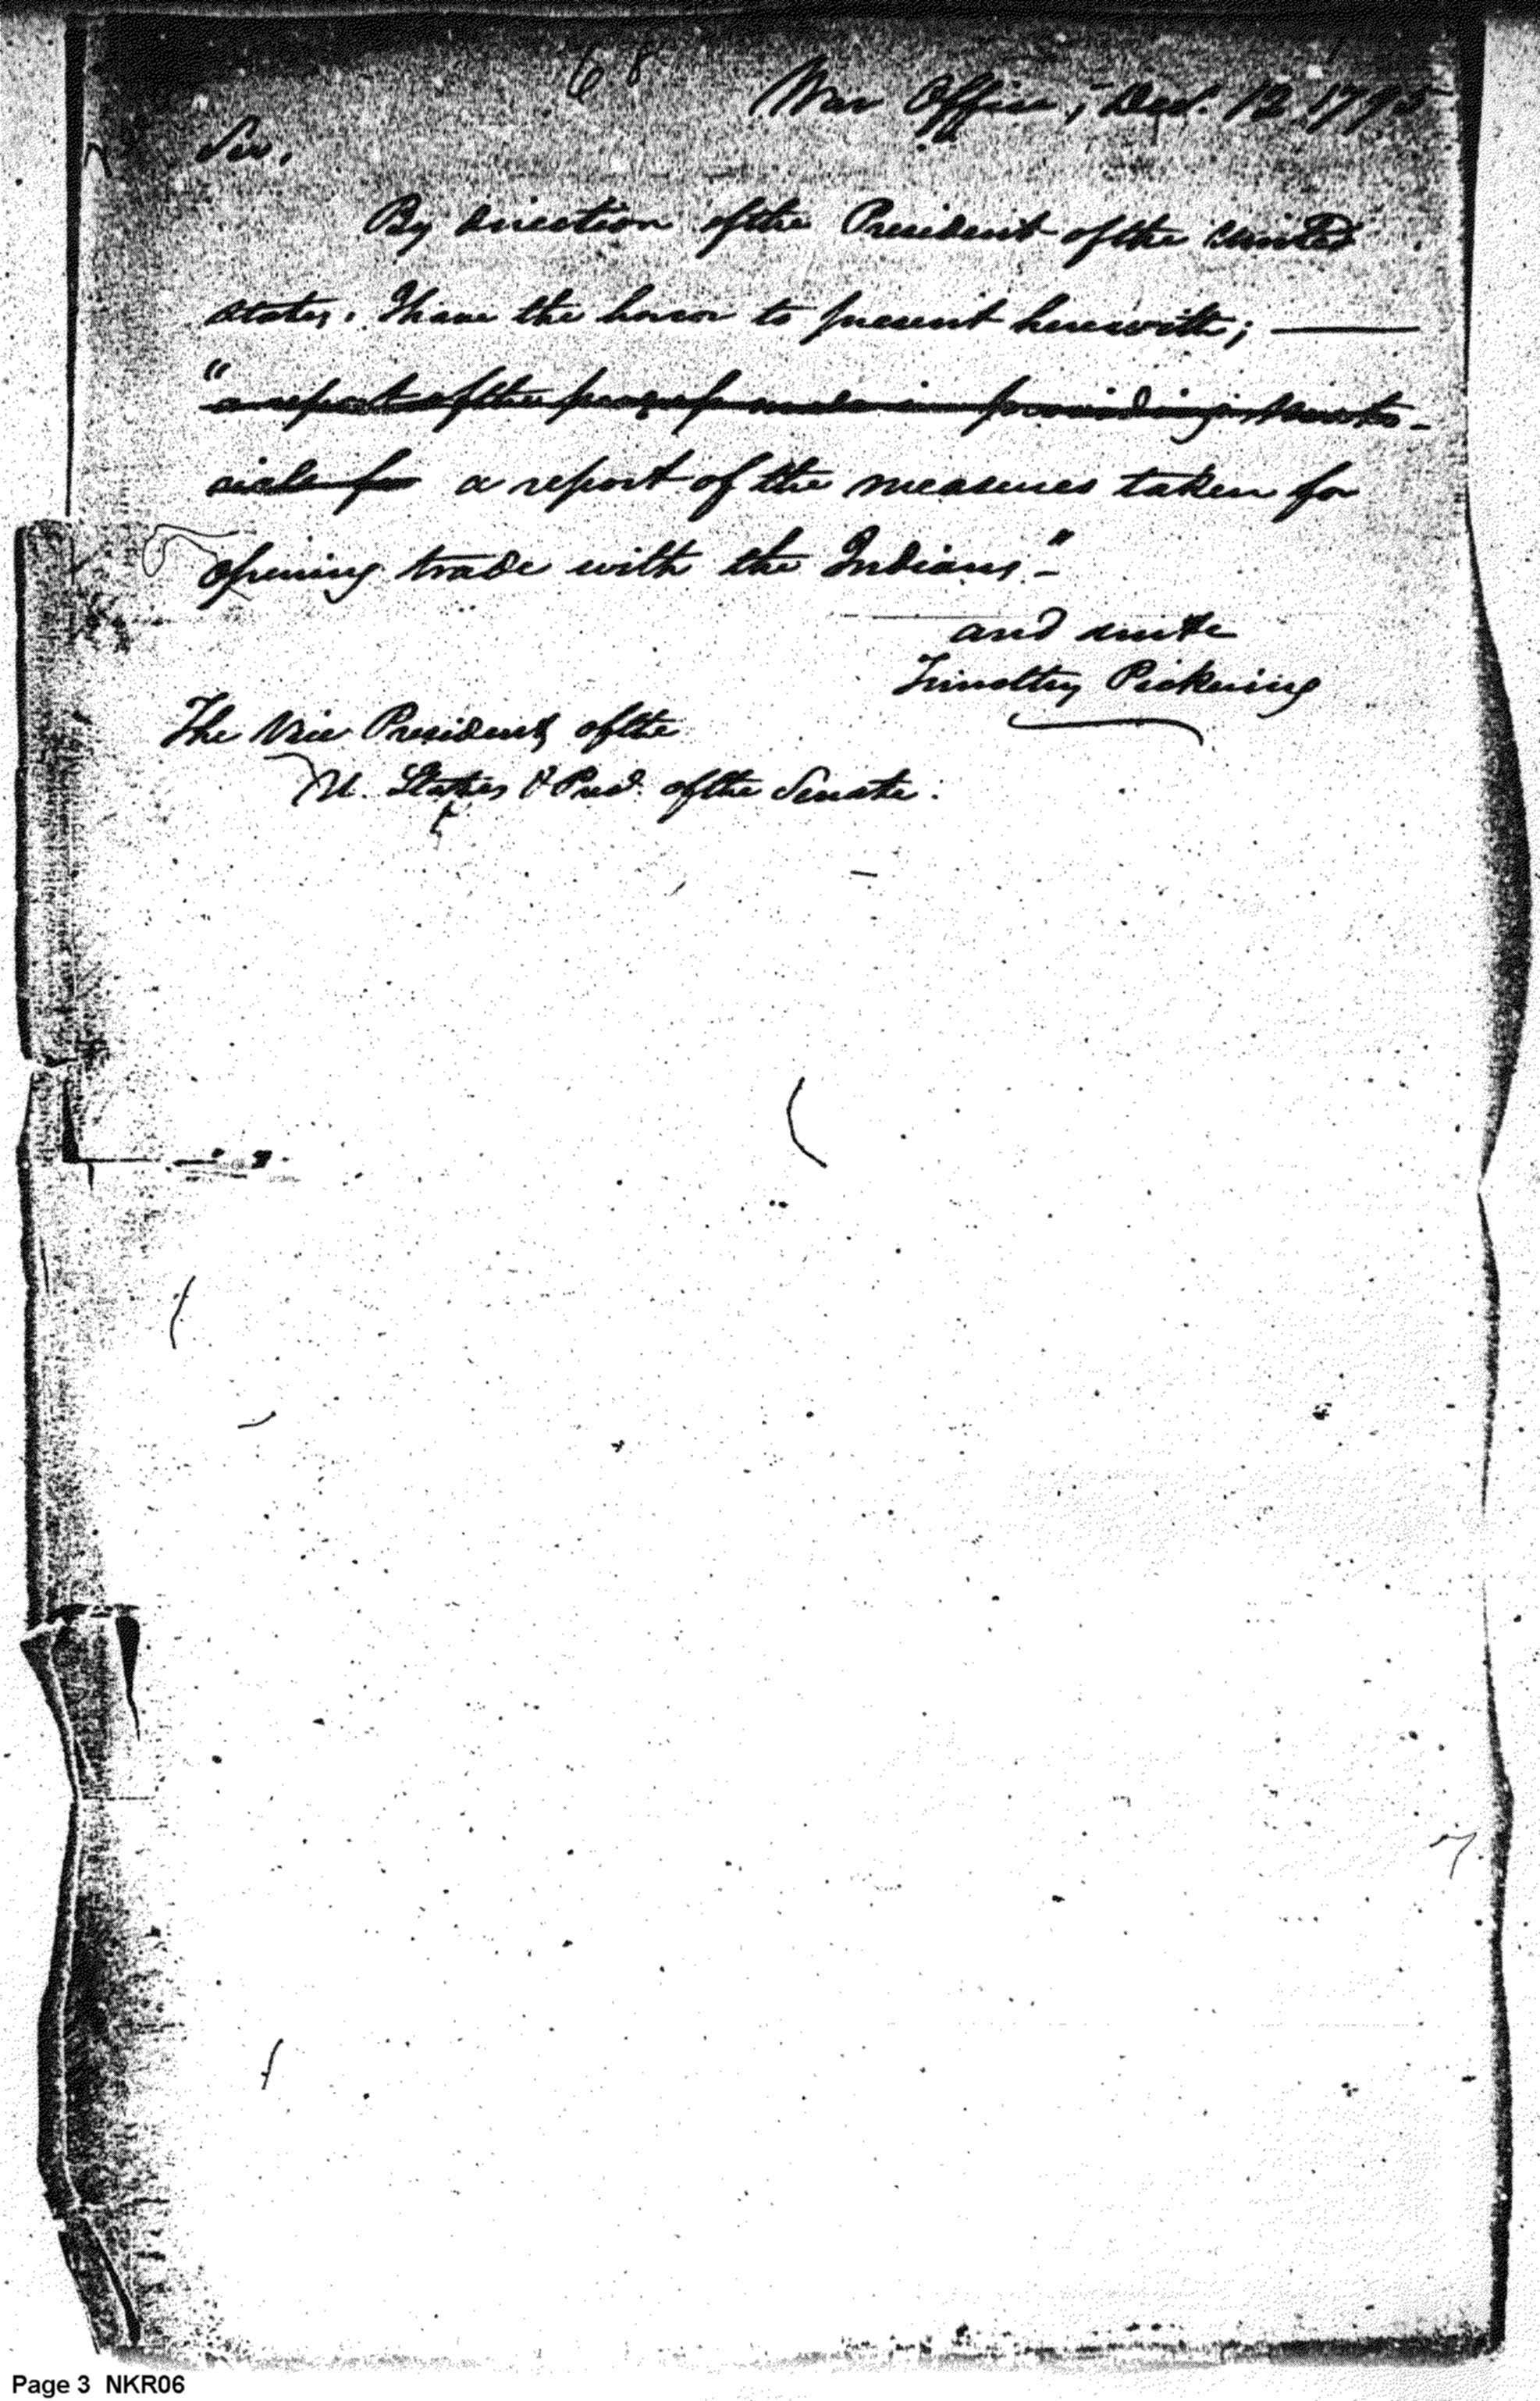 68
War Office, Dec. 12 1795
Sir,
By direction of the President of the United
States, I have the honor to present herewith; —
"a report of the progress made in providing the mate-
rials for a report of the measures taken for
opening trade with the Indians"—
and
Timothy Pickering
The Vice President of the
U. States & Pres. of the Senate.
Page 3 NKR06